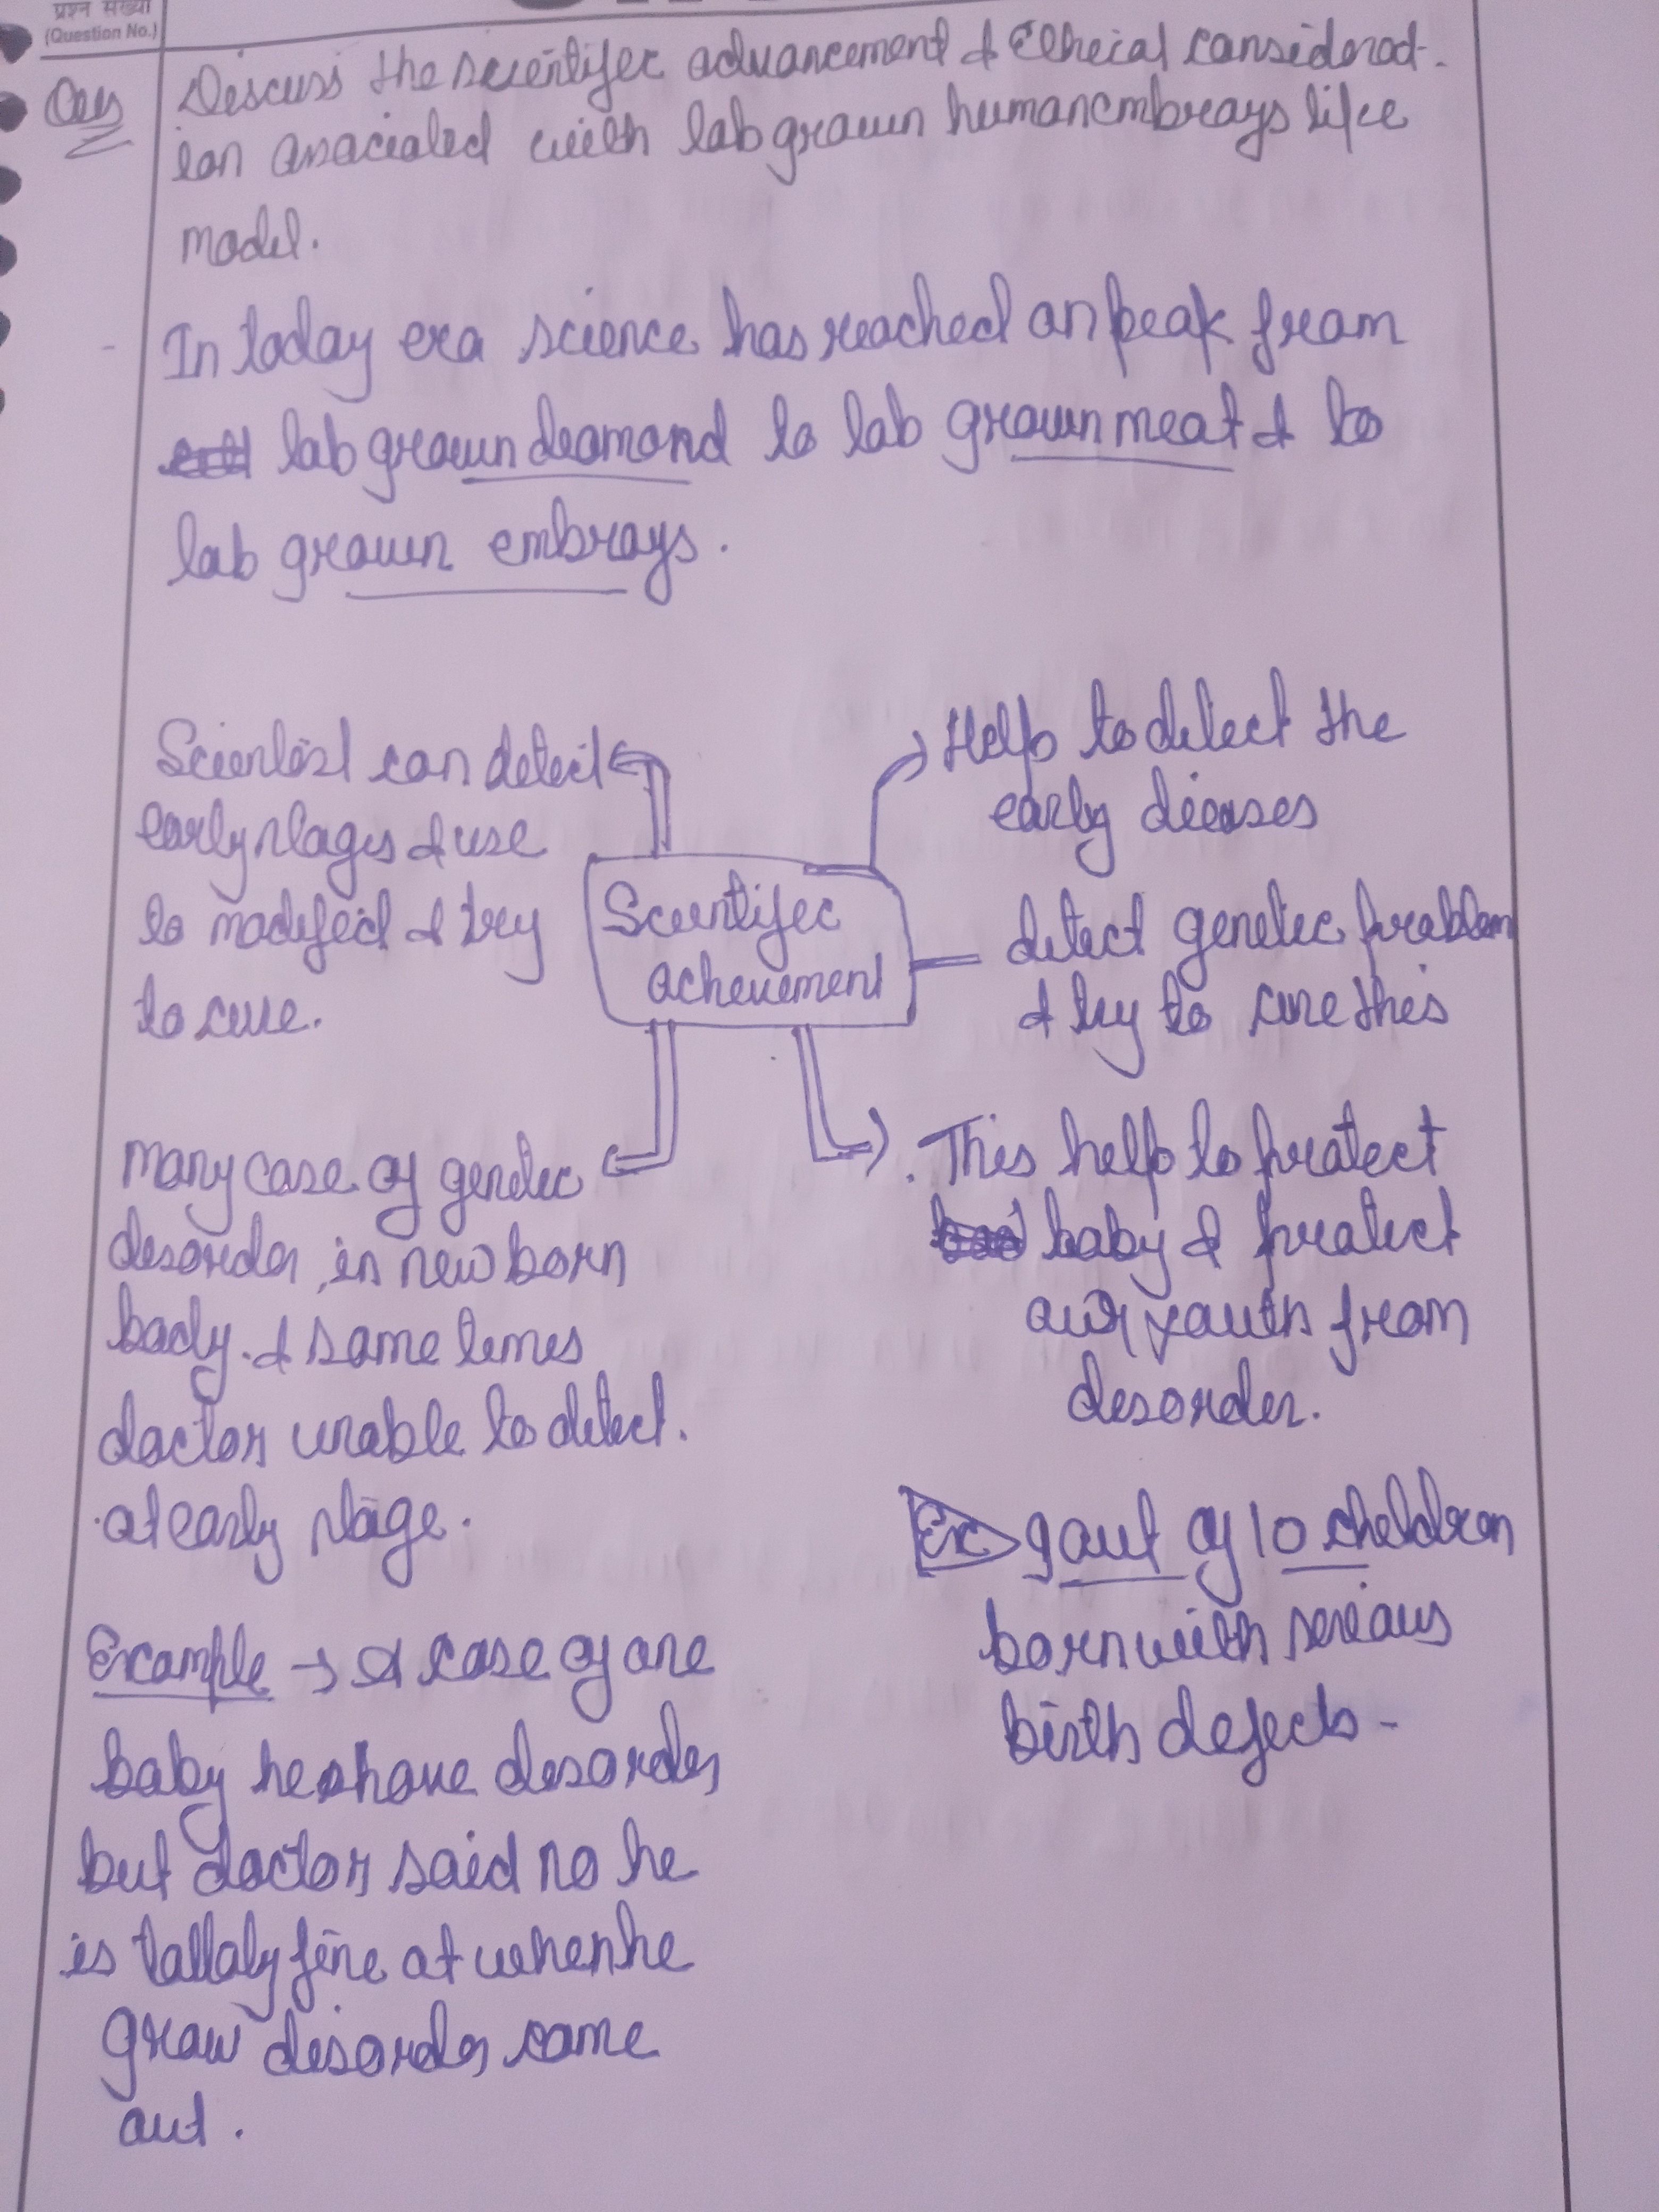 प्रश्न संख्या
(Question No.)
Ques
Discuss the scientific advancement & Ethecial considerat-
ion associated with lab grown human embroys like
model.
In today era science has reached on peak from
lab grown deamond to lab grown meat & to
lab grown embroys.
Scientist can detect
early stages & use
to modified & try
to cure.
Help to detect the
early dieases
Scientific
acheivement
detect genetic problem
& try to cure this
Many case of genetic
desorder in new born
body. & some times
doctor unable to detect.
at early stage.
This help to protect
baby & protect
our youth from
desorder.
Example → A case of one
baby he have desorder
but doctor said no he
is tollaly fine at when he
grow desorder come
out.
Ex 9 out of 10 children
born with serious
birth defects -